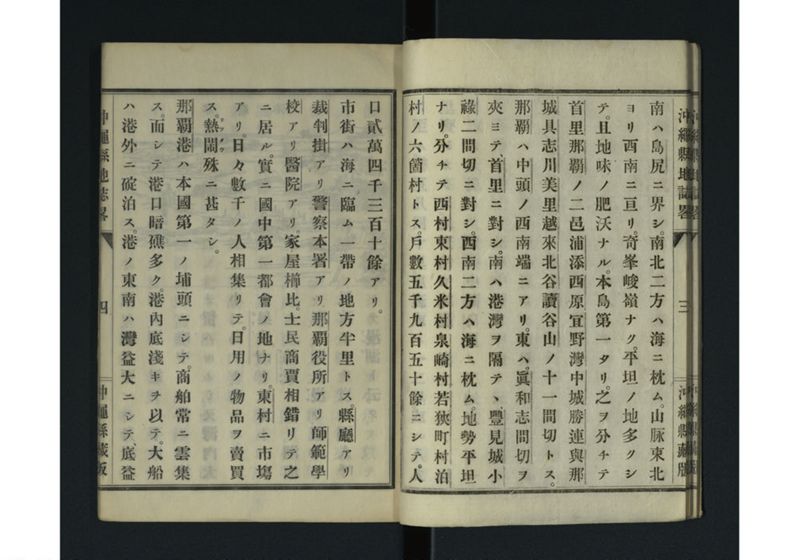 南ハ島尻ニ界シ。南北二方ハ海ニ枕ム。山脉東北
ヨリ西南ニ亘リ。奇峯峻嶺ナク。平坦ノ地多クシ
テ。且地味ノ肥沃ナル。本島第一タリ。之ヲ分チテ
首里那覇ノ二邑浦添西原宜野灣中城勝連與那
城具志川美里越來北谷讀谷山ノ十一間切トス。
那覇ハ中頭ノ西南端ニアリ。東ハ。眞和志間切ヲ
夾ミテ首里ニ對シ。南ハ港灣ヲ隔テヽ豐見城小
祿二間切ニ對シ。西南二方ハ海ニ枕ム地勢平坦
ナリ。分チテ西村東村久米村泉崎村若狹町村泊
村ノ六箇村トス。戶數五千九百五十餘ニシテ。人
沖繩縣地誌畧
三
沖繩縣藏版
口貳萬四千三百十餘アリ。
市街ハ海ニ臨ム一帶ノ地方半里トス縣廳アリ
裁判掛アリ警察本署アリ那覇役所アリ師範學
校アリ醫院アリ家屋櫛比。士民商賈相錯リテ之
ニ居ル。實ニ國中第一都會ノ地ナリ。東村ニ市塲
アリ。日々數千ノ人相集リテ。日用ノ物品ヲ賣買
ス。熱閙殊ニ甚タシ。
那覇港ハ本國第一ノ埔頭ニシテ。商舶常ニ雲集
ス。而シテ港口暗礁多ク。港內底淺キヲ以テ。大船
ハ港外ニ碇泊ス。港ノ東南ハ灣益大ニシテ、底益
沖繩縣地誌畧
四
沖繩縣藏版